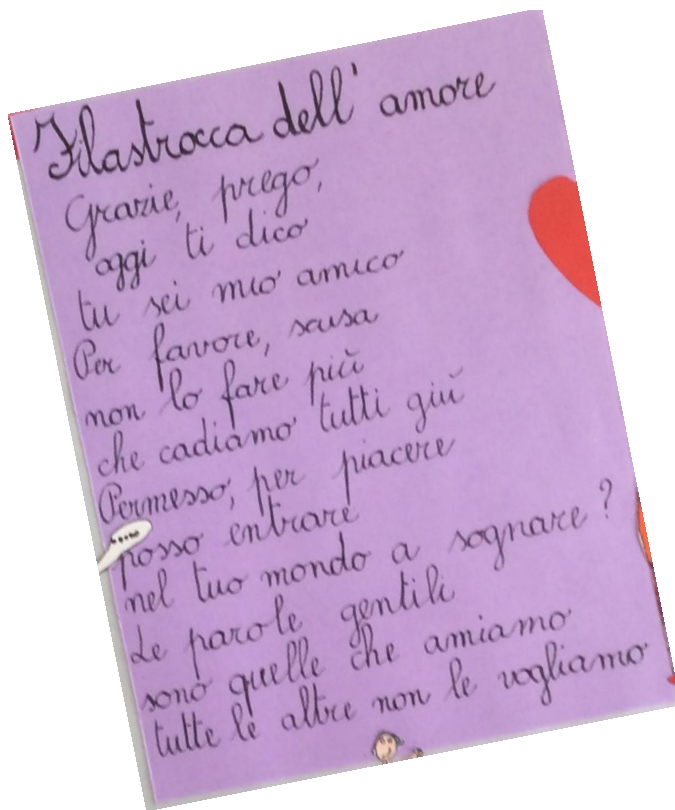 Filastrocca dell' amore
Grazie, prego,
oggi ti dico
tu sei mio amico
Per favore, scusa
non lo fare più
che cadiamo tutti giù
Permesso, per piacere
posso entrare
nel tuo mondo a sognare?
Le parole gentili
sono quelle che amiamo
tutte le altre non le vogliamo